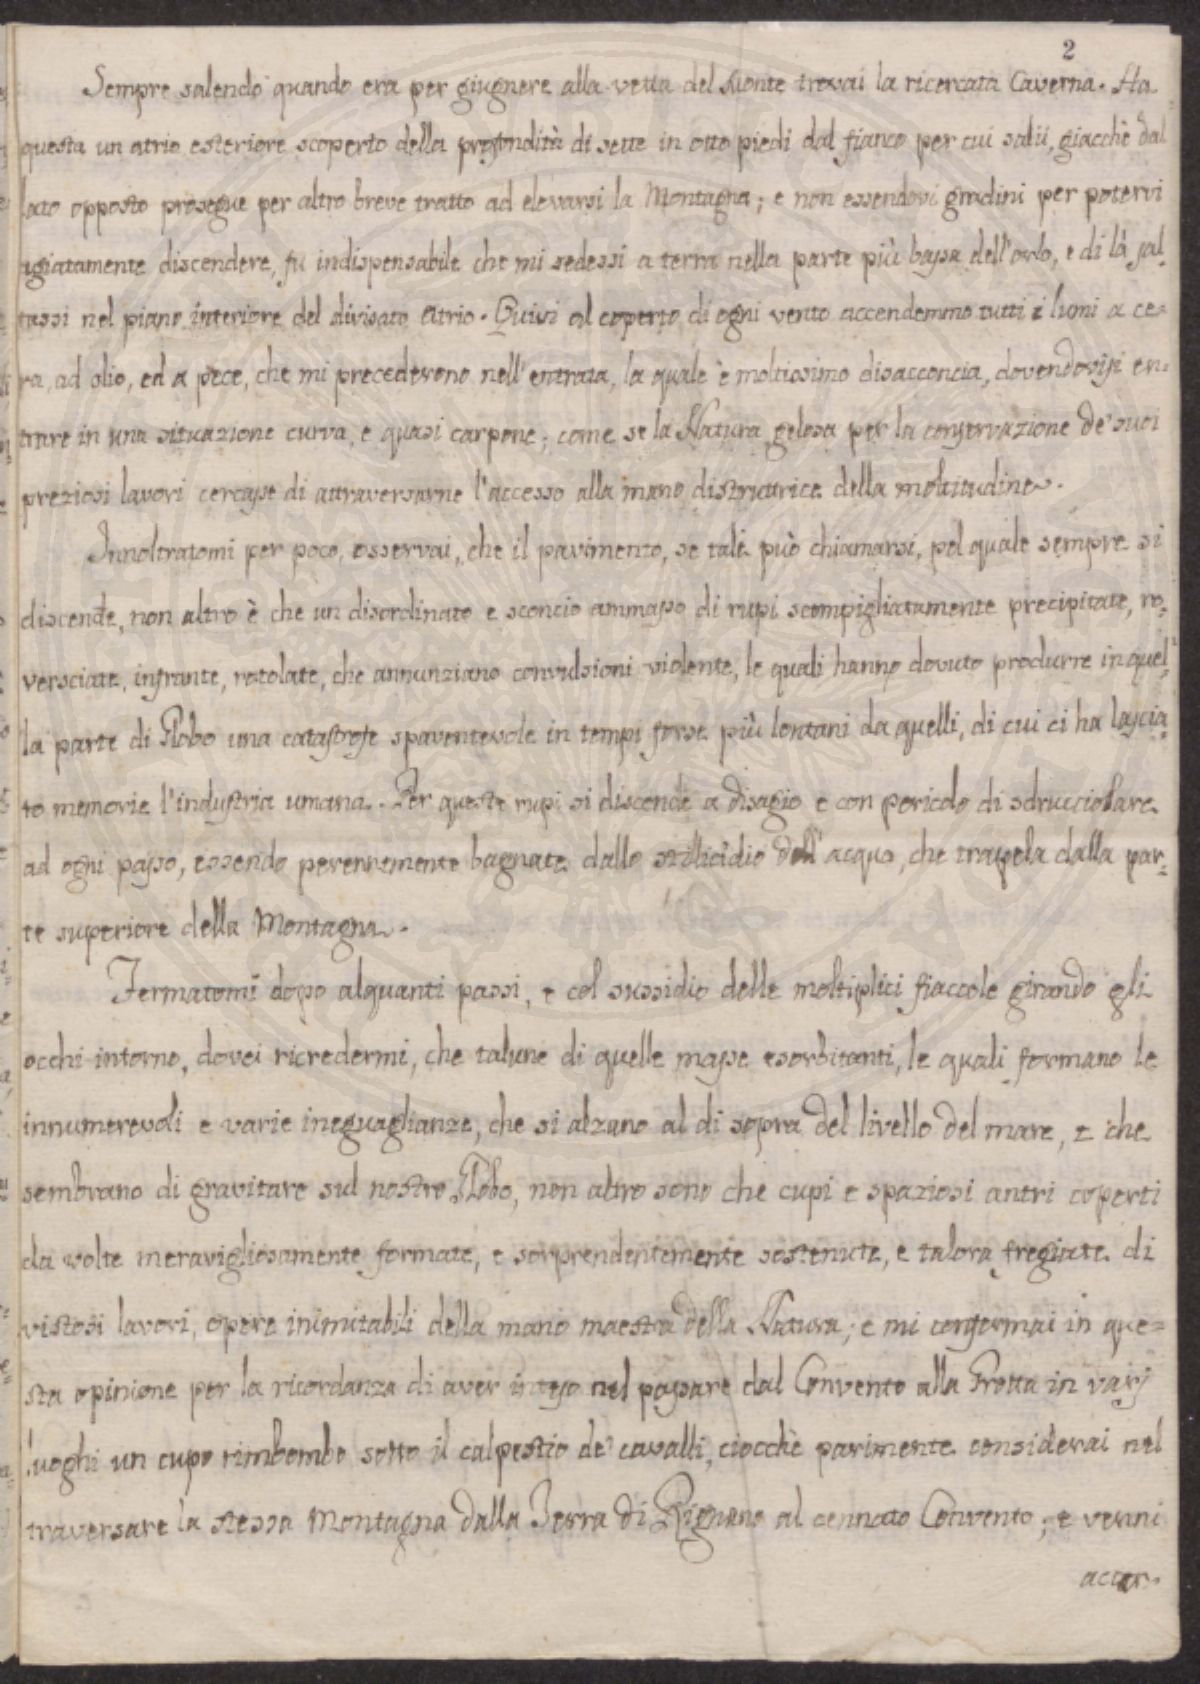 2
Sempre salendo quando era per giugnere alla vetta del Monte trovai la ricercata Caverna. Ha
questa un atrio esteriore scoperto della profondità di sette in otto piedi dal fianco per cui salii, giacchè dal
lato opposto prosegue per altro breve tratto ad elevarsi la Montagna; e non essendovi gradini per potervi
agiatamente discendere, fu indispensabile che mi sedessi a terra nella parte più bassa dell'orlo, e di là sal-
tassi nel piano interiore del divisato atrio. Quivi al coperto di ogni vento accendemmo tutti i lumi a ce-
ra, ad olio, ed a pece, che mi precederono nell'entrata, la quale è moltissimo disacconcia, dovendovisi en-
trare in una situazione curva, e quasi carpone; come se la Natura gelosa per la conservazione de' suoi
preziosi lavori cercasse di attraversarne l'accesso alla mano distruttrice della moltitudine.
Innoltratomi per poco, osservai, che il pavimento, se tale può chiamarsi, pel quale sempre si
discende, non altro è che un disordinato e sconcio ammasso di rupi scompigliatamente precipitate, ro-
versciate, infrante, rotolate, che annunziano convulsioni violente, le quali hanno dovuto produrre in quel-
la parte di Globo una catastrofe spaventevole in tempi forse più lontani da quelli, di cui ci ha lascia-
to memorie l'industria umana. Per queste rupi si discende a disagio e con pericolo di sdrucciolare
ad ogni passo, essendo perennemente bagnate dallo stillicidio dell'acqua, che trapela dalla par-
te superiore della Montagna.
Fermatomi dopo alquanti passi, e col sussidio delle moltiplici fiaccole girando gli
occhi intorno, dovei ricredermi, che talune di quelle masse esorbitanti, le quali formano le
innumerevoli e varie ineguaglianze, che si alzano al di sopra del livello del mare, e che
sembrano di gravitare sul nostro Globo, non altro sono che cupi e spaziosi antri coperti
da volte meravigliosamente formate, e sorprendentemente sostenute, e talora fregiate di
vistosi lavori, opere inimitabili della mano maestra della Natura; e mi confermai in que-
sta opinione per la ricordanza di aver inteso nel passare dal Convento alla Grotta in varj
luoghi un cupo rimbombo sotto il calpestio de' cavalli, ciocchè parimente considerai nel
traversare la stessa Montagna dalla Terra di Rignano al cennato Convento; e venni
accer-